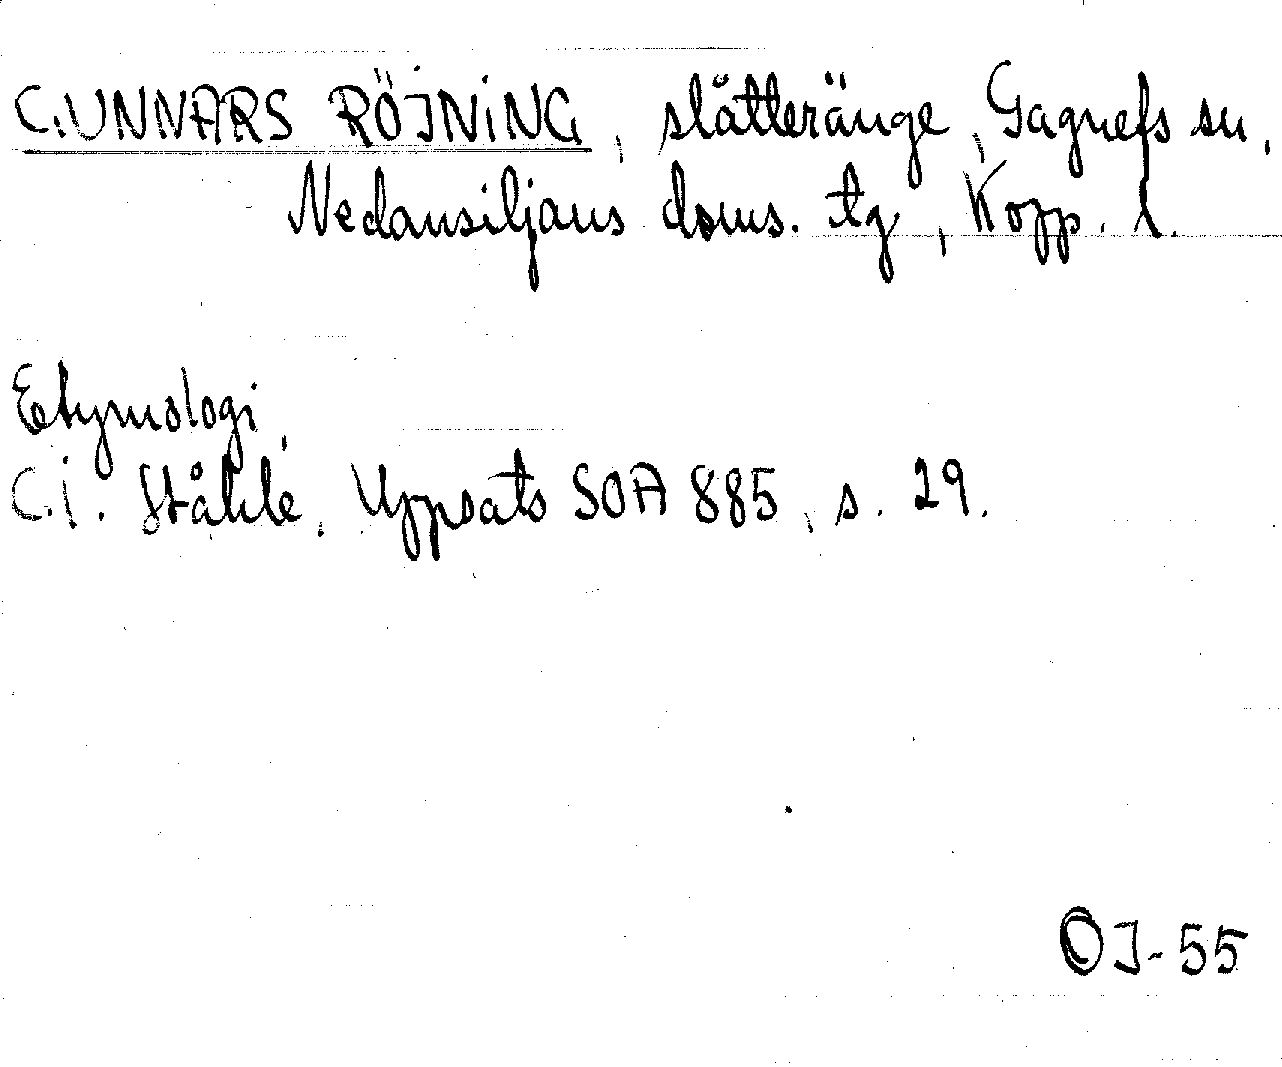 GUNNARS RÖJNING, slåtteränge, Gagnefs sn,
Nedansiljans doms. tg, Kopp. l.
Etymologi
C.I. Ståhle, Uppsats SOA 885, s. 29.
OJ-55